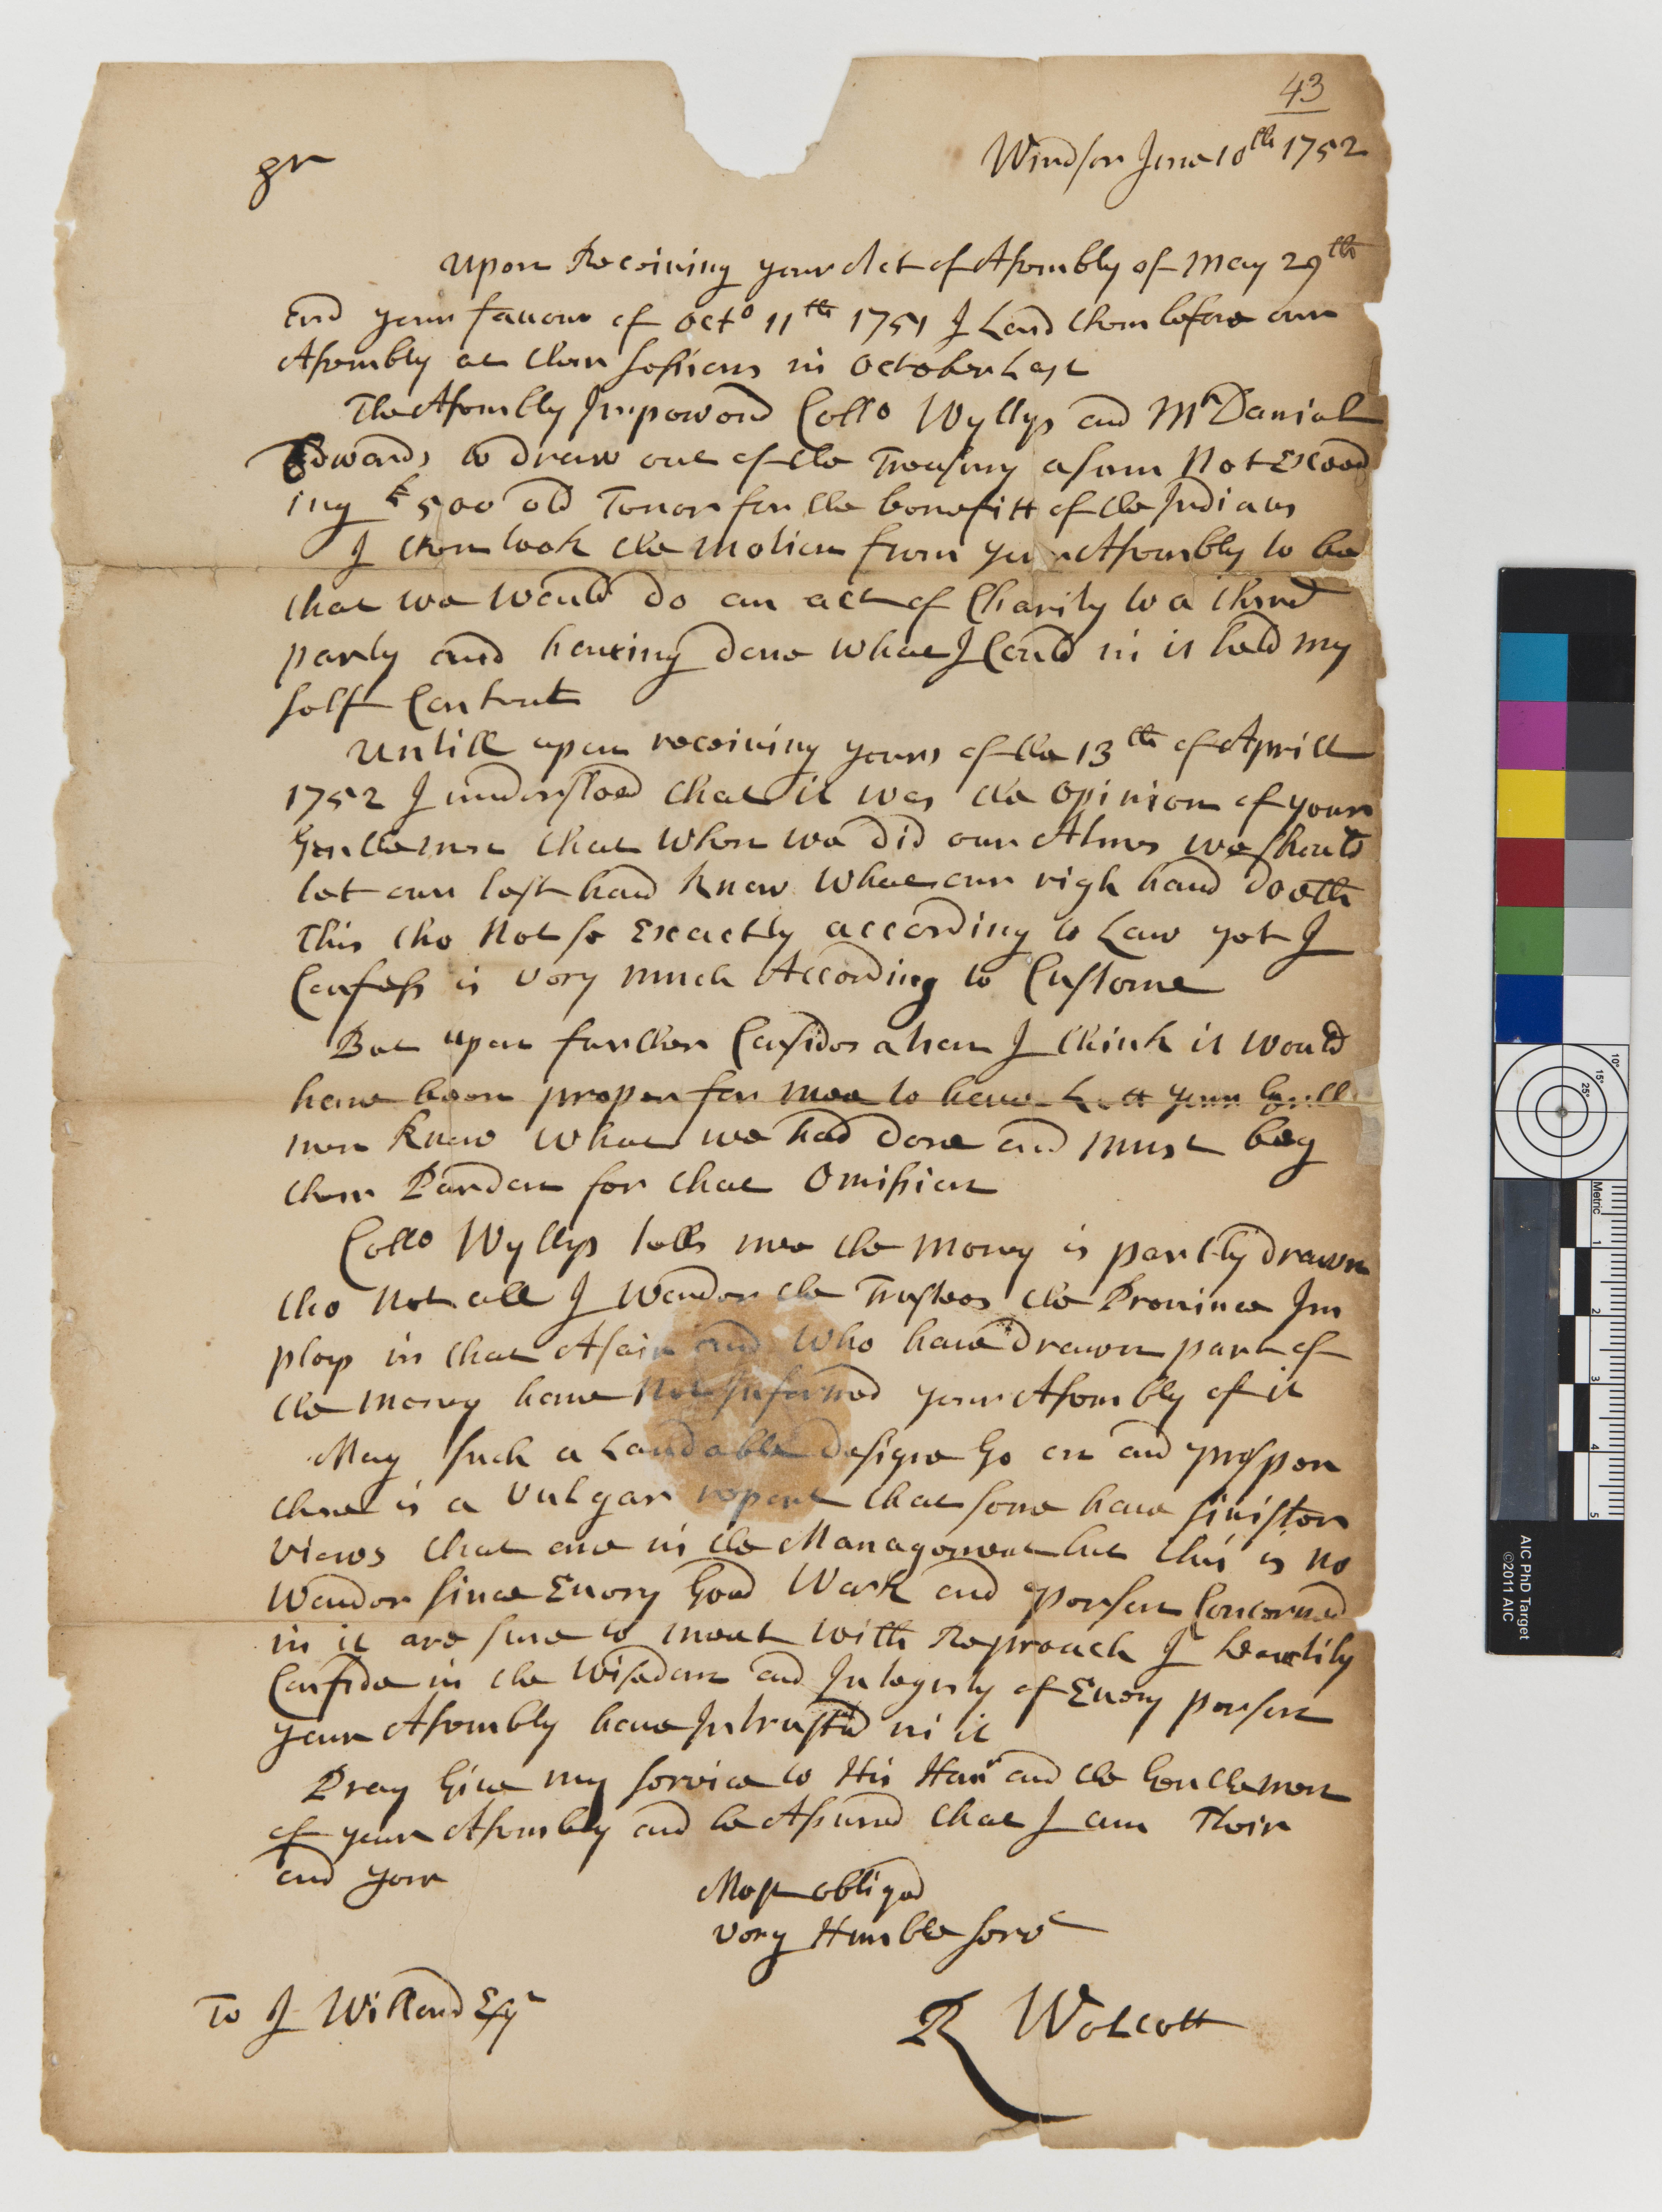 43
Windsor June 10th 1752
Sr
Upon Receiving your Act of Assembly of May 29th
and your favour of octo 11th 1751 I Laid them before our
Assembly at their sessions in October Last
The Assembly Impowerd Collo Wyllys and Mr Daniel
Edwards to draw out of the Treasury a sum Not Exceed
ing £500 old Tenor for the benefitt of the Indians
I then took the motion from your Assembly to be
that we would do an act of Charity to a third
party and haveing done what I Could in it held my
self Content
Untill upon receiving yours of the 13th of Aprill
1752 I understood that it was the opinion of your
Gentlemen that when we did our Almes we should
let our left hand know what our righ hand dooth
This tho Not so Exactly according to Law yet I
Confess is very much According to Custome
But upon further Consideration I think it would
have been proper for mee to have Lett your Gentle
men know what we had done and must beg
their Pardon for that Omission
Collo Wyllys tells mee the money is partly drawn
tho Not all I wonder the Trustees the Province Im
ploys in that Afair and who have drawn part of
the money have Not Informed your Assembly of it
May such a Laudable designe Go on and prosper
there is a vulgar report that some have sinister
views that are in the Management but this is no
wonder since Every Good Work and person Concerned
in it are sure to meet with Reproach I heartily
Confide in the Wisedom and Integrity of Every person
your Assembly have Intrusted in it
Pray Give my service to His Honr and the Gentlemen
of your Assembly and be Assured that I am Their
and your
Most obliged
very Humble servt
To J Willard Esqr
R Wolcott
10°
15°
25°
Metric
1
2
3
4
5
AIC PhD Target
©2011 AIC